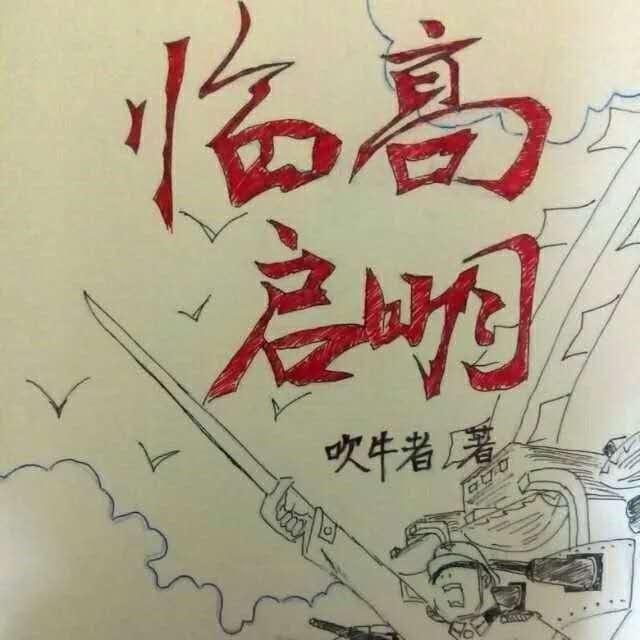 临高
启明
吹牛者 著